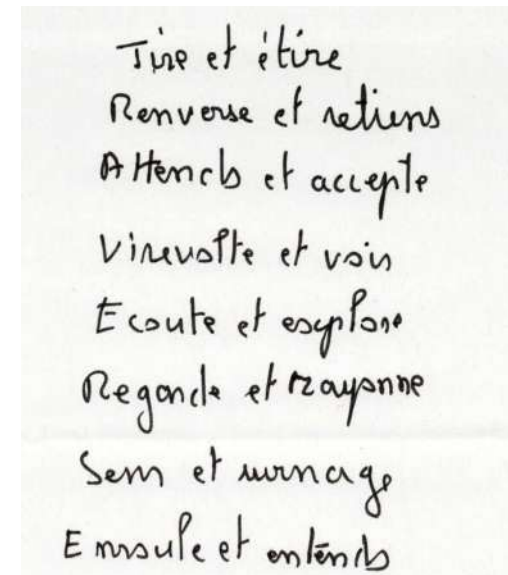 Tire et étire
Renverse et retiens
Attends et accepte
Virevolte et vois
Ecoute et explore
Regarde et rayonne
Sens et surnage
Enroule et entends